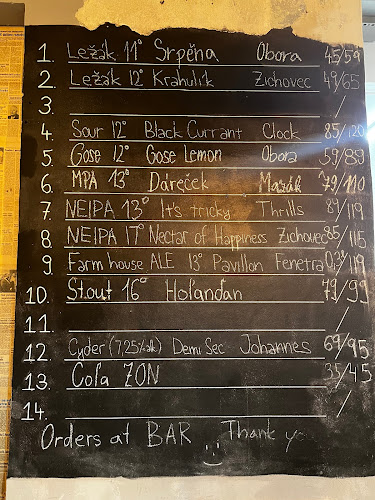 1. Ležák 11° Srpěna Obora 45/59
2. Ležák 12° Krahulík Zichovec 49/65
3. /
4. Sour 12° Black Currant Clock 85/120
5. Gose 12° Gose Lemon Obora 59/89
6. MPA 13° Dáreček Mazák 79/110
7. NEIPA 13° It's tricky Thrills 89/119
8. NEIPA 17° Nectar of Happiness Zichovec 85/115
9. Farm house ALE 13° Pavillon Fenetra 0,3l/119
10. Stout 16° Holanďan 79/99
11. /
12. Cyder (7,25%alk) Demi Sec Johannes 69/95
13. Cola ZON 35/45
14. /
Orders at BAR Thank